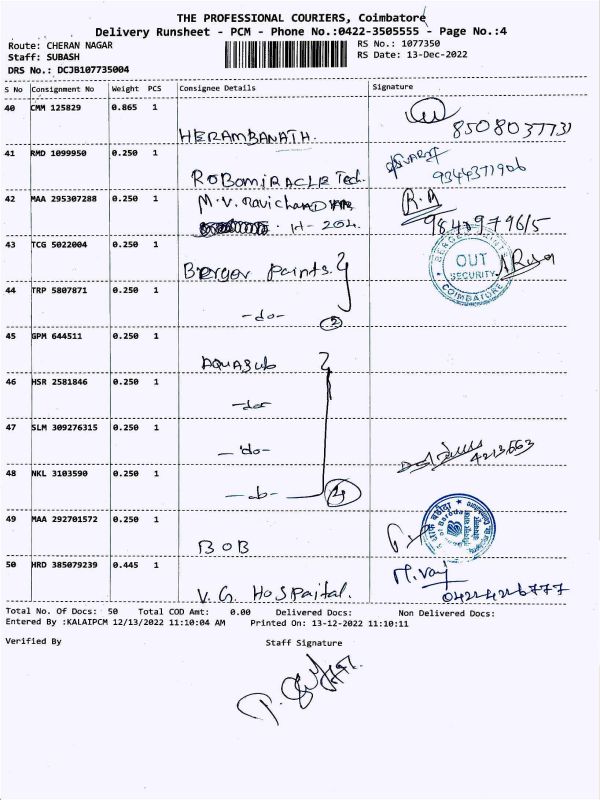 THE PROFESSIONAL COURIERS, Coimbatore
Delivery Runsheet - PCM - Phone No.:0422-3505555 - Page No.:4
Route: CHERAN NAGAR RS No.: 1077350
Staff: SUBASH RS Date: 13-Dec-2022
DRS No.: DCJB107735004
S No Consignment No Weight PCS Consignee Details Signature
40 CMM 125829 0.865 1
HERAMBANATH. 8508037731
41 RMD 1099950 0.250 1
ROBOMIRACLE Tech. 9344371906
42 MAA 295307288 0.250 1 R.A
M.V. Ravichandran
H-204. 98409796/5
43 TCG 5022004 0.250 1
Berger Paints. BERGER PAINTS OUT SECURITY COIMBATORE
44 TRP 5807871 0.250 1
-do- 2
45 GPM 644511 0.250 1
AQUASUB
46 HSR 2581846 0.250 1
-do-
47 SLM 309276315 0.250 1
-do- 4213663
48 NKL 3103590 0.250 1
-do- 4
49 MAA 292701572 0.250 1
BOB of Baroda
50 HRD 385079239 0.445 1
V.G. Hospaital. 0422426777
Total No. Of Docs: 50 Total COD Amt: 0.00 Delivered Docs: Non Delivered Docs:
Entered By :KALAIPCM 12/13/2022 11:10:04 AM Printed On: 13-12-2022 11:10:11
Verified By Staff Signature